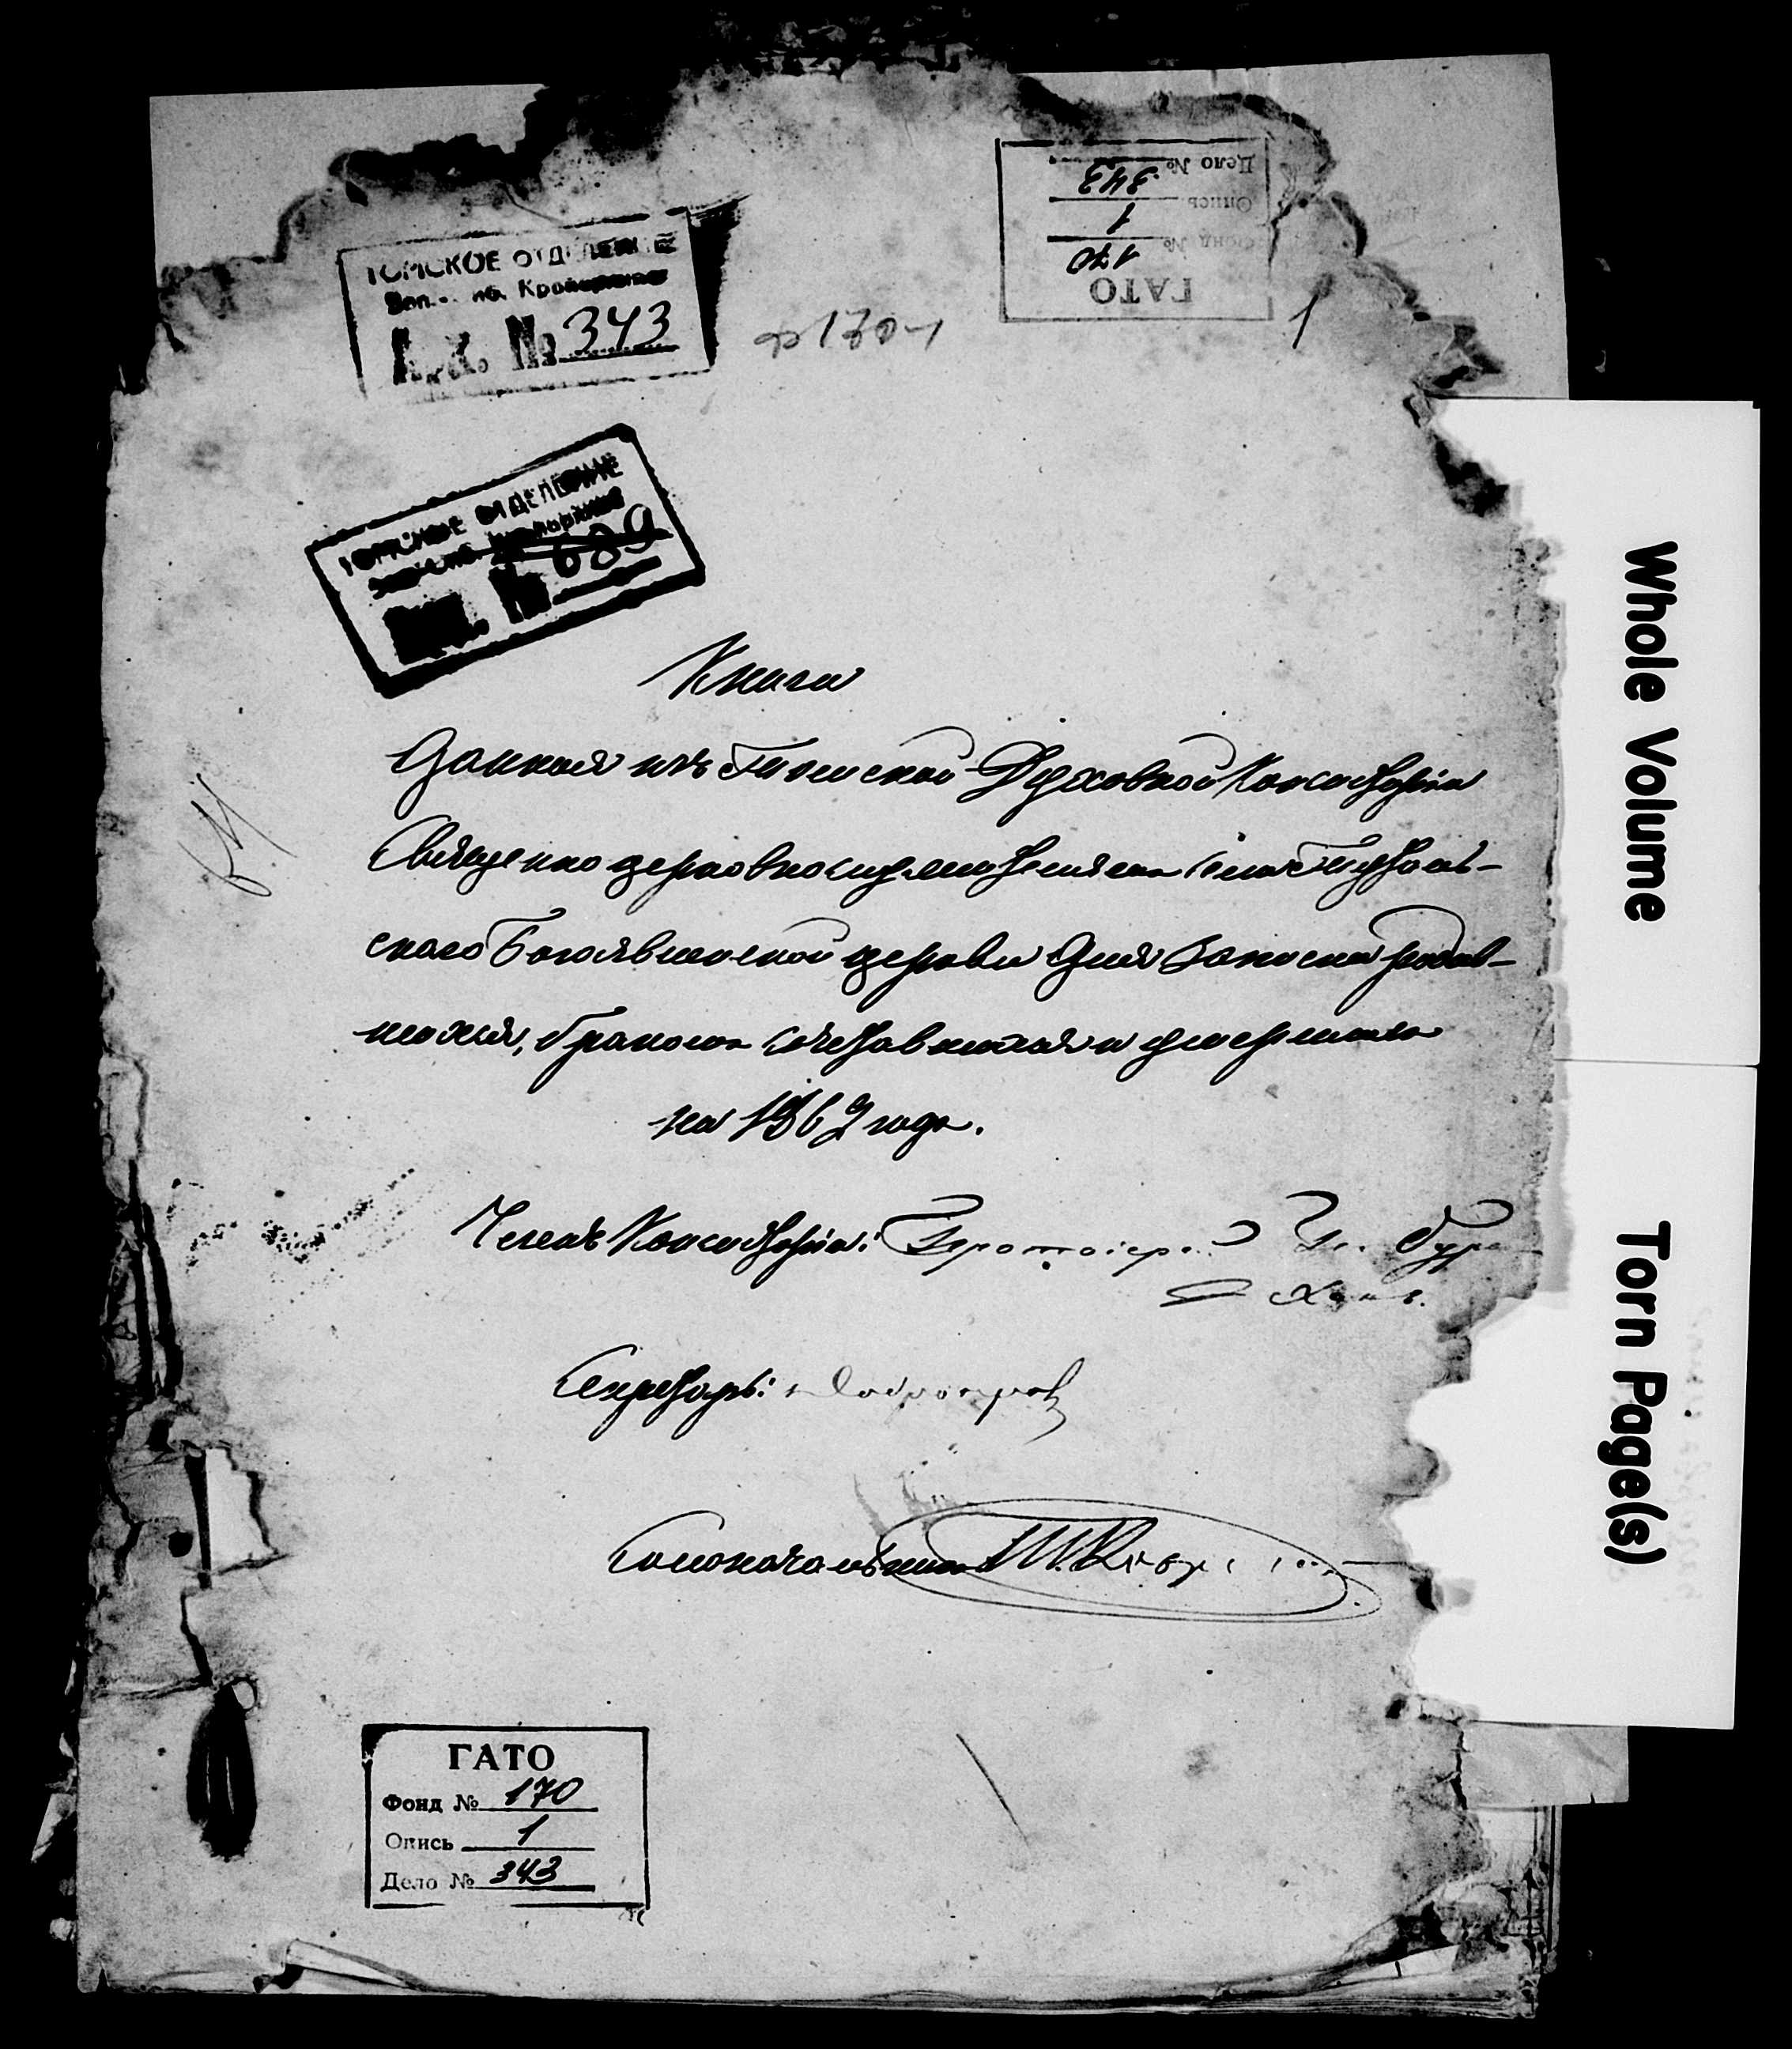 ТОМСКОЕ ОТДЕЛЕНИЕ
№ 343
ГАТО
Фонд № 170
Опись 1
Дело № 343
1
ф170-1
ТОМСКОЕ ОТДЕЛЕНИЕ
№ 689
Книга
Данная изъ Томской Духовной Консисторіи
Священно церковнослужителямъ села
скаго Богоявленской церкви для записки родив-
шихся, бракомъ сочетавшихся и умершихъ
на 1862 годъ.
Членъ Консисторіи: Протоіерей
Секретарь:
Столоначальникъ
ГАТО
Фонд № 170
Опись 1
Дело № 343
Whole Volume
Torn Page(s)